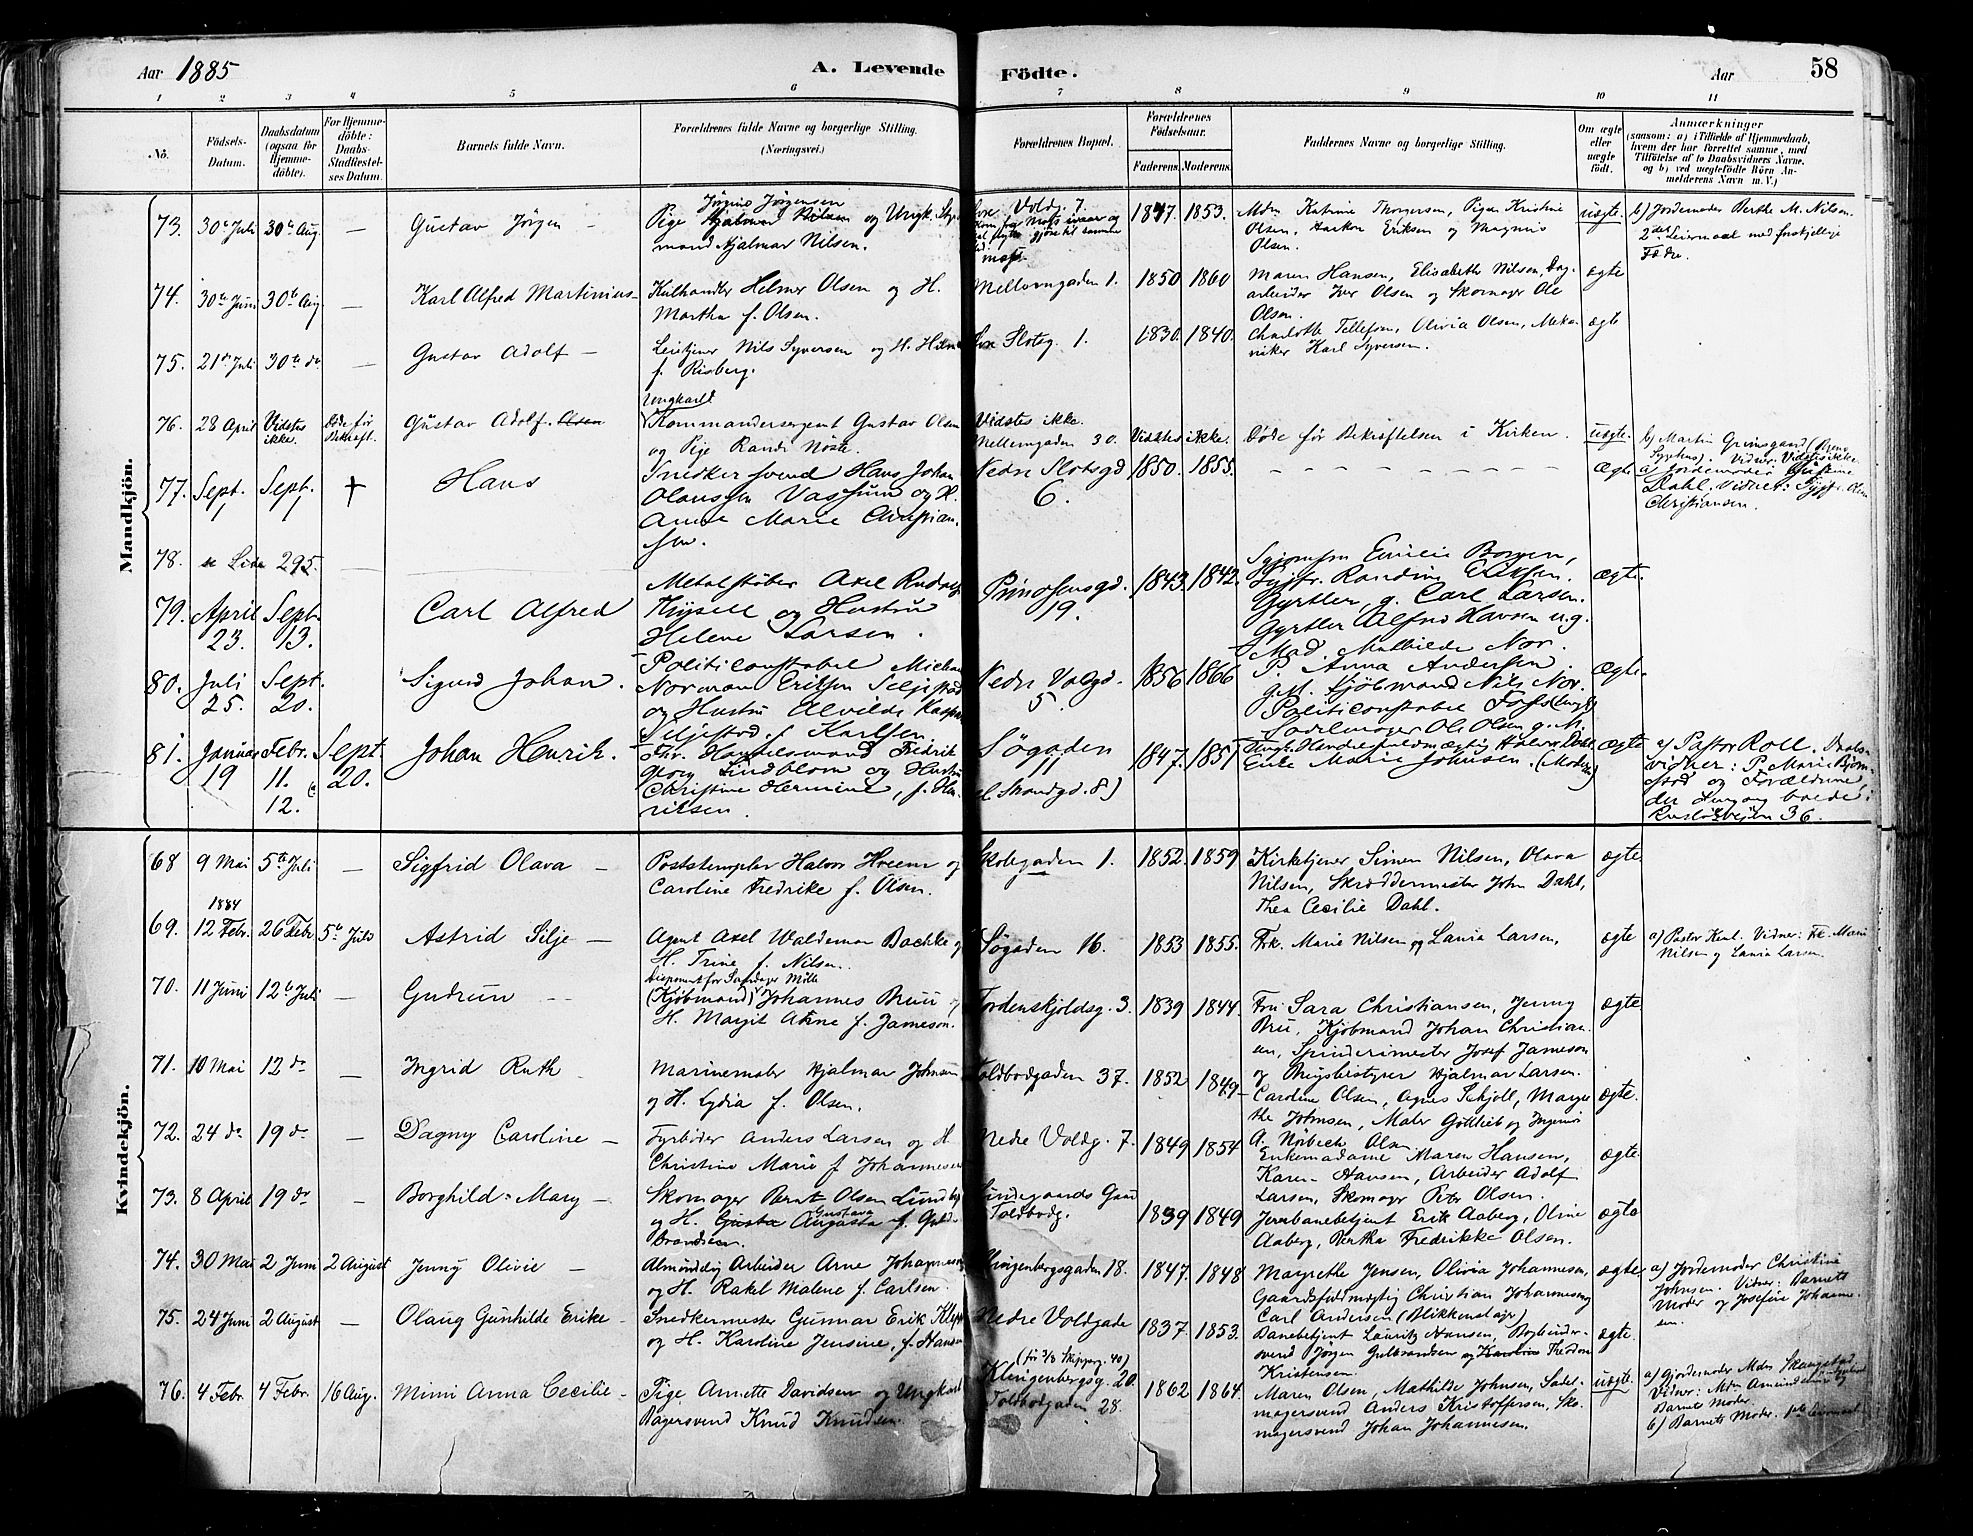 Aar 1885
A. Levende
Födte.
Aar
58
1 2 3 4 5 6 7 8 9 10 11
No.
Födsels-
Datum.
Daabsdatum
(ogsaa for
Hjemme-
döbte).
For Hjemme-
döbte:
Daabs-
Stadfæstel-
ses Datum.
Barnets fulde Navn.
Forældrenes fulde Navne og borgerlige Stilling.
(Næringsvei.)
Forældrenes Bopæl.
Forældrenes
Födselsaar.
Faderens. Moderens.
Faddernes Navne og borgerlige Stilling.
Om ægte
eller
uægte
født.
Anmærkninger
(saasom: a) i Tilfælde af Hjemmedaab,
hvem der har forrettet samme, med
Tilföielse af to Daabsvidners Navne,
og b) ved uægtefødte Börn An-
melderens Navn m. V.)
Mandkjön.
73. 30te Juli 30te Aug. — Gustav Jörgen —
Jörgine Jörgensen
Pige Hjalmar Nilsen og Ungk.
mand Hjalmar Nilsen.
Voldg. 7.
1847 1853.
Mdm Katrine Thorgersen, Pigen Kristine
Olsen, Haakon Eriksen og Magnus
Olsen.
uægte.
b) Jordemoder Berthe M. Nilsen.
2det Leiermaal med forskjellige
Fædre.
74. 30te Juni 30te Aug — Karl Alfred Martinius —
Kulhandler Helmer Olsen og H.
Martha f. Olsen.
Mellomgaden 1. 1850 1860
Maren Hansen, Elisabeth Nilsen, Dag-
arbeider Iver Olsen og Skomager Ole
Olsen.
ægte
75. 21de Juli 30te do — Gustav Adolf —
Nils Syversen og H.
f. Risberg.
Slotsg. 1. 1830. 1840.
Charlotte Tellefsen, Olivia Olsen, Meka-
niker Karl Syversen.
ægte
76. 28 April Vidstes
ikke. Døde før
Bekræft. Gustav Adolf. Olsen
Ungkarl
Kommandersergent Gustav Olsen
og Pige Randi Nöste.
Vidstes ikke.
Mellemgaden 30. Vidstes ikke.
Døde før Bekræftelsen i Kirken. uægte.
b) Martin Grimsgaard
Vidner: Vidstes ikke
77. Sept. Sept. † Hans
1 1
Snedkersvend Hans Johan
Olaussen Vassum og H.
Anne Marie Christian-
sen.
Nedre Slotsgd
6.
1850. 1855. Ægte
a) Jordemoder
Dahl. Vidner:
Christiansen.
78. 295.
79. April Sept. Carl Alfred
23. 13.
Metalstøber Axel Rudolf
og Hustru
Helene Larsen.
Prindsensgd.
19.
1843. 1842.
Emilie Borgen,
Randine Eriksen.
Gyrtler, g. Carl Larsen.
Gyrtler Alfred Hansen u.g.
Mad. Mathilde Nor.
Ægte.
80. Juli Sept. Sigurd Johan.
25. 20.
Politiconstabel Michael
Norman Eriksen Seljestad
og Hustru Alvilde Kaspara
Seljestad, f. Karlsen
Nedre Voldgd.
5.
1856. 1866
P. Anna Andersen.
g.M. Kjöbmand Nils Nor.
Politiconstabel
Sadelmager Ole Olsen g.M.
Ægte.
81. Januar Febr. Sept. Johan Henrik.
19 11. 20.
12.
Fhv. Handelsmand Fredrik
Georg Lindblom og Hustru
Christine Hermine, f. Hen-
riksen.
Søgaden
11
Strandgd. 8.)
1847. 1851
Enke Marie Johnsen. (Moderen)
Ægte
a) Pastor Roll. Daabs-
vidner: P. Marie Bjørn-
stad og Forældrene
der boede:
36.
Kvindekjön.
68 9 Mai 5te Juli — Sigfrid Olava —
Poststempler Halvor Hveem og
Caroline Fredrike f. Olsen.
Skolegaden 1. 1852. 1859.
Kirketjener Simen Nilsen, Olava
Nilsen, Skræddermester John Dahl,
Thea Cecilie Dahl.
ægte
1884
69. 12 Febr. 26 Febr. 5te Juli Astrid Silje —
Agent Axel Waldemar Bachke og
H. Trine f. Nilsen.
Søgaden 16. 1853 1855.
Frk. Marie Nilsen og Laura Larsen,
ægte
a) Pastor Vidner: Frk. Marie
Nilsen og Laura Larsen.
70. 11 Juni 12te Juli — Gudrun
Disponent for
(Kjöbmand) Johannes Bruu og
H. Margit f. Jameson.
Tordenskjoldsg. 3. 1839 1844.
Fru Sara Christiansen, Jenny
Bru, Kjöbmand Johan Christian-
sen, Spinderimester Josef Jameson
og Brugsbestyrer Hjalmar Larsen.
ægte.
71. 10 Mai 12 do — Ingrid Ruth
Marinemaler Hjalmar Johnsen
og H. Lydia f. Olsen.
Toldbodgaden 37. 1852 1849
Caroline Olsen, Agnes Schjöll, Margre-
the Johnsen, Maler Gottlieb og Ingeniør
A. Nörbech Olsen
ægte.
72. 24 do 19 do — Dagny Caroline —
Fyrböder Anders Larsen og H.
Christine Marie f. Johannesen
Nedre Voldg. 7. 1849 1854
Enkemadame Maren Hansen,
Karen Hansen, Arbeider Adolf
Larsen, Skomager Peter Olsen.
ægte.
73. 8 April 19 do — Borghild Mary —
Skomager Bernt Olsen Lundby
og H. Gusta Gustava Augusta f. Guld-
brandsen.
Lindegaards Gaard
Toldbodg.
1839 1849
Jernbanebetjent Erik Aaberg, Oline
Aaberg, Bertha Fredrikke Olsen.
ægte
74. 30 Mai 2 Juni 2 August Jenny Olivie —
Almindelig Arbeider Arne Johannesen
og H. Rakel Malene f. Carlsen.
Klingenbergsgaden 18. 1847. 1848
Margrethe Jensen, Olivia Johannesen,
Gaardsfuldmægtig Christian Johannesen og
Carl Andersen (Blikkenslager)
ægte
a) Jordemoder Christine
Johnsen. Vidner: Barnets
Moder og Josefine Johanne-
sen.
75. 24 Juni 2 August Olaug Gunhilde Erike —
Snedkermester Gunnar Erik
og H. Karoline Jensine, f. Hansen
Nedre Voldgade
1837 1853.
Banebetjent Lauritz Hansen, Bogbinder-
svend Jörgen Gulbrandsen og Karoline Theodora
Kristensen.
ægte.
76. 4 Febr. 4 Febr. 16 Aug. Mimi Anna Cecilie —
Pige Annette Davidsen og Ungkarl
Bagersvend Knud Knudsen.
(før 3/8 Skipperg. 40)
Klingenbergsg. 20.
Toldbodgaden 28.
1862 1864.
Maren Olsen, Mathilde Johnsen, Sadel-
magersvend Anders Kristoffersen, Sko-
magersvend Johan Johannesen.
uægte.
a) Gjordemoder Mdm Skaugstad
Vidner: Mdm Amundsen og
Barnets Moder.
b) Barnets Moder. 1ste Leiermaal